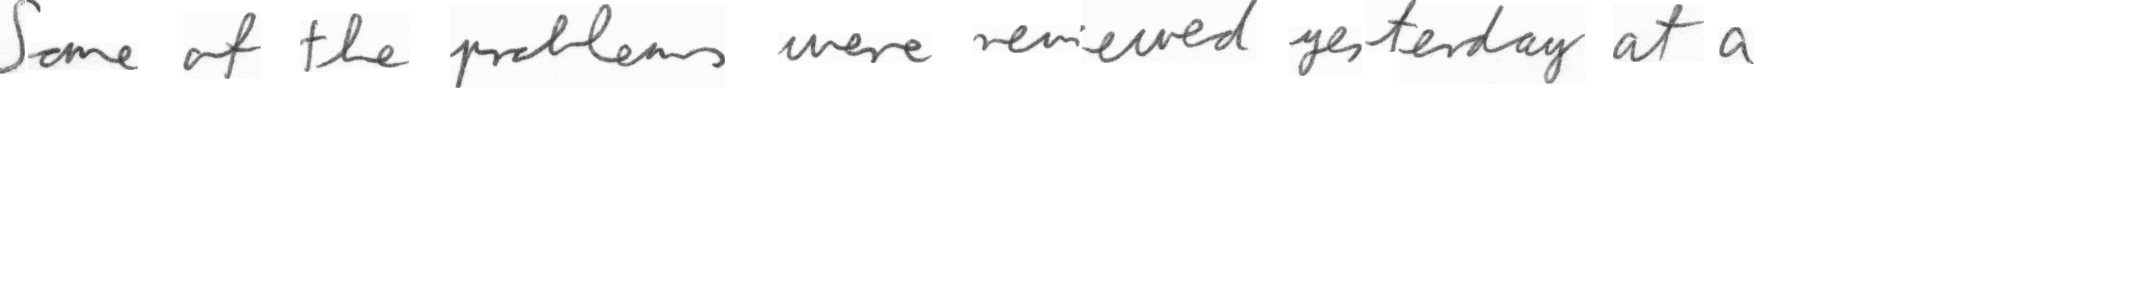 Some of the problems were reviewed yesterday at a